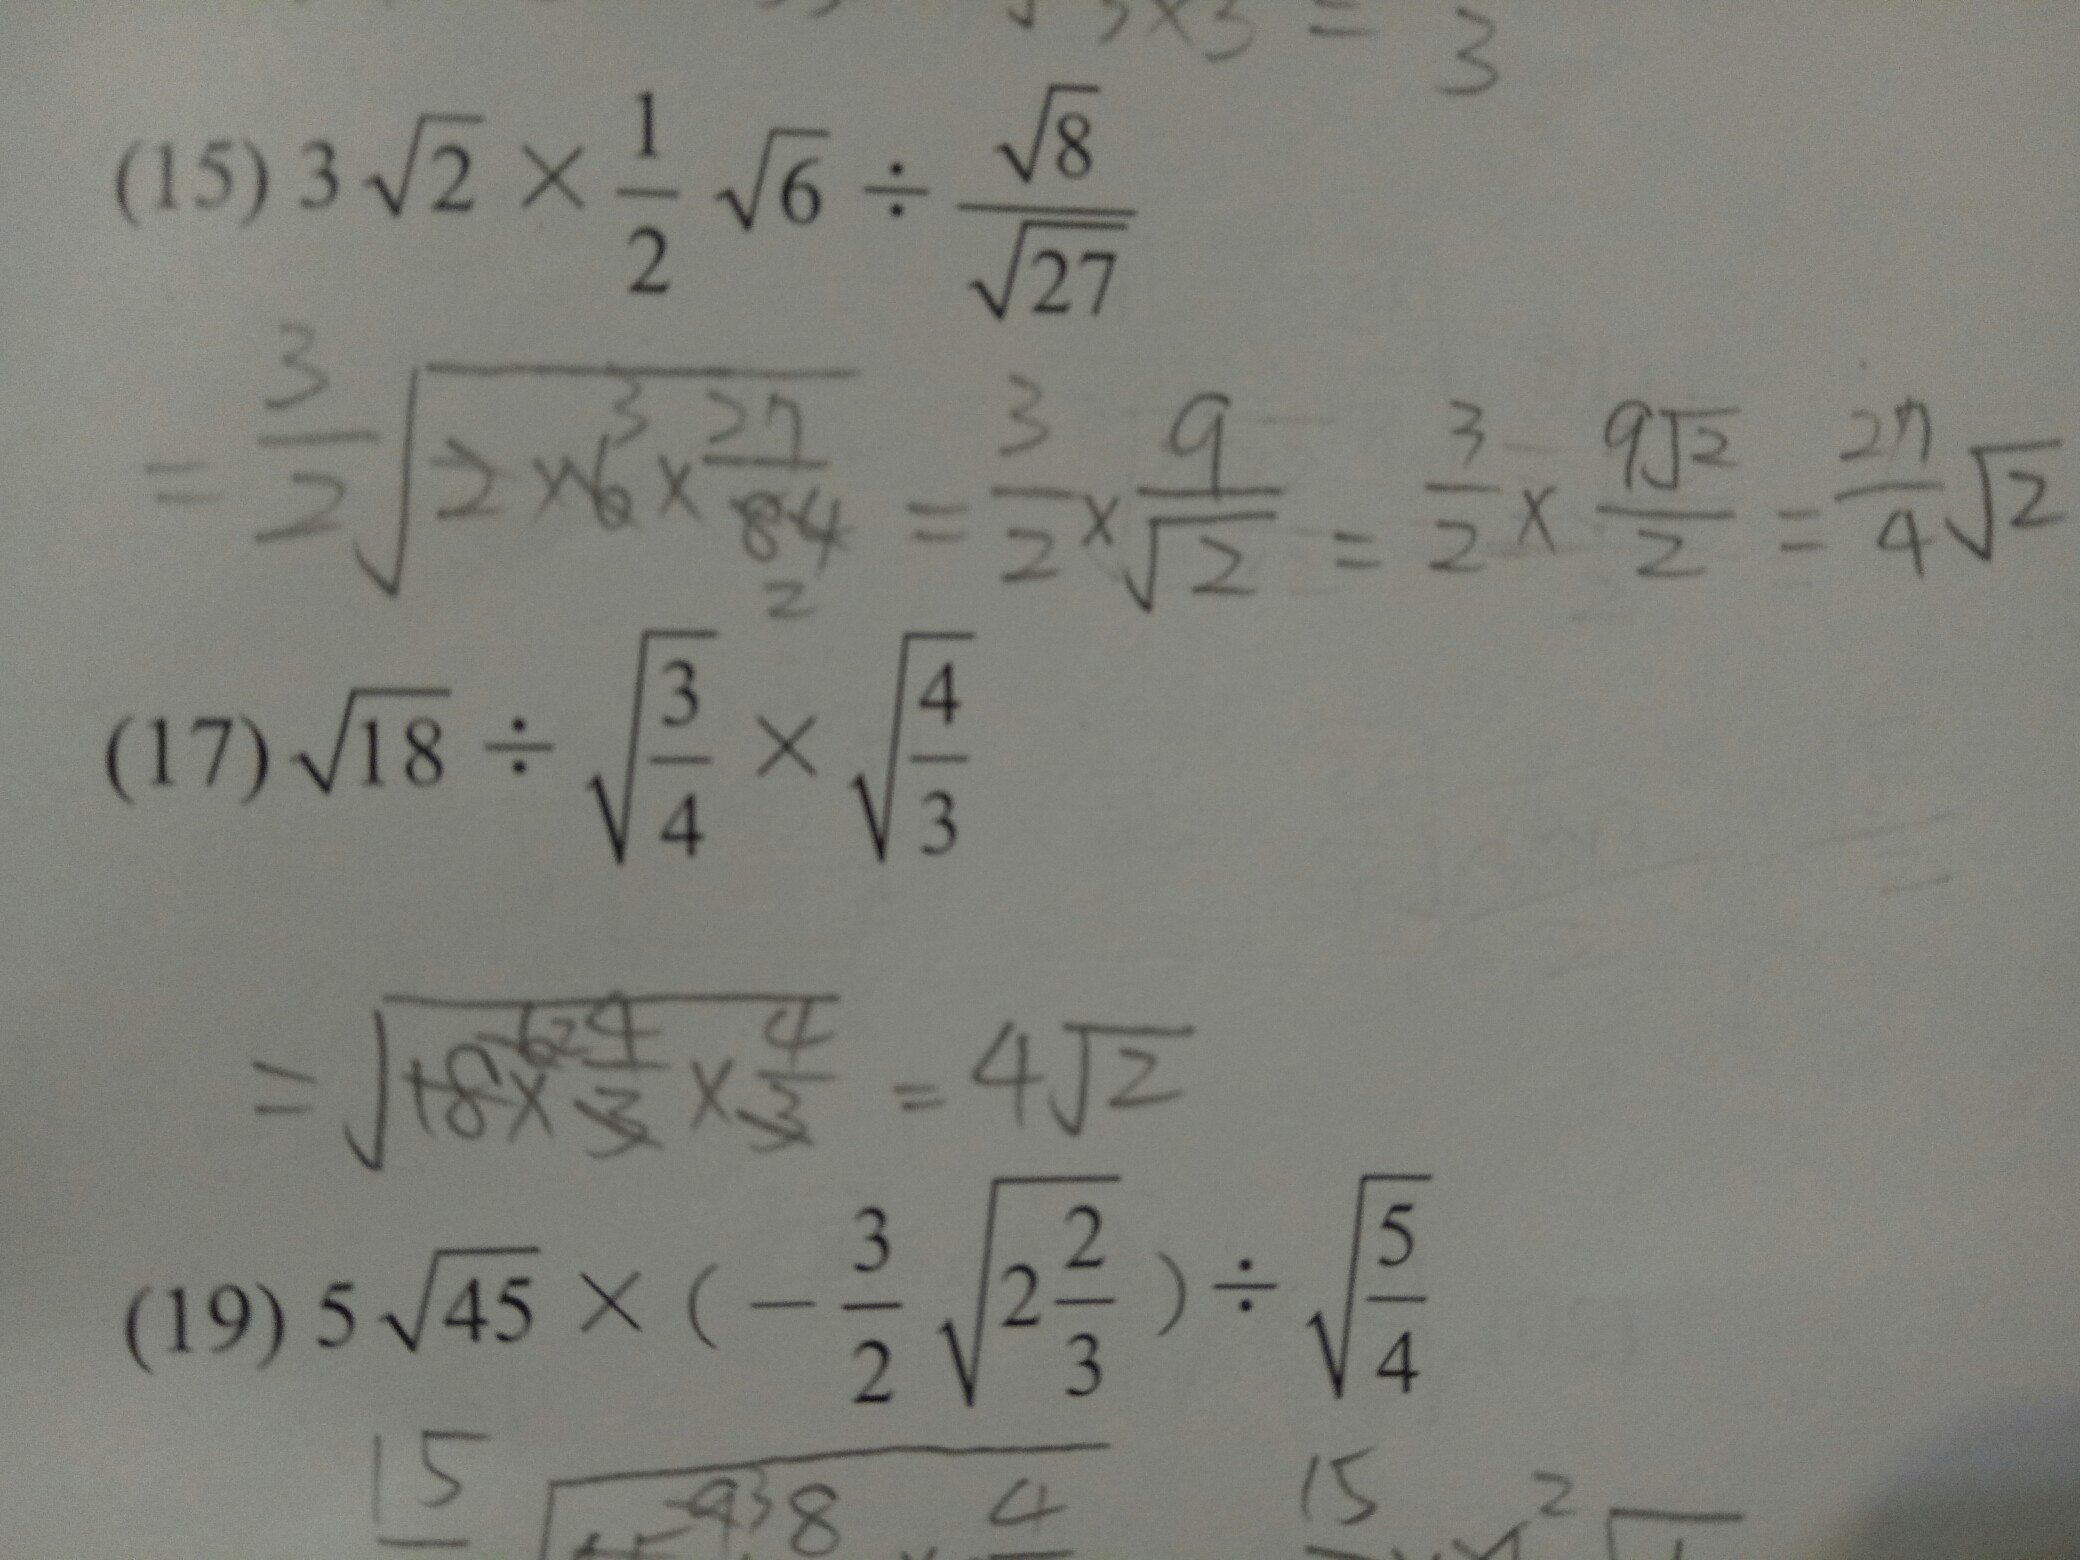 √3×3 = 3
(15) 3√2 × 1/2 √6 ÷ √8/√27
= 3/2 √(2×6 3×27/8 4 2) = 3/2 × 9/√2 = 3/2 × 9√2/2 = 27/4 √2
(17) √18 ÷ √(3/4) × √(4/3)
= √(18 6 2×4/3×4/3) = 4√2
(19) 5√45 × (−3/2 √(2 2/3)) ÷ √(5/4)
15 9 3 8 4 15 2